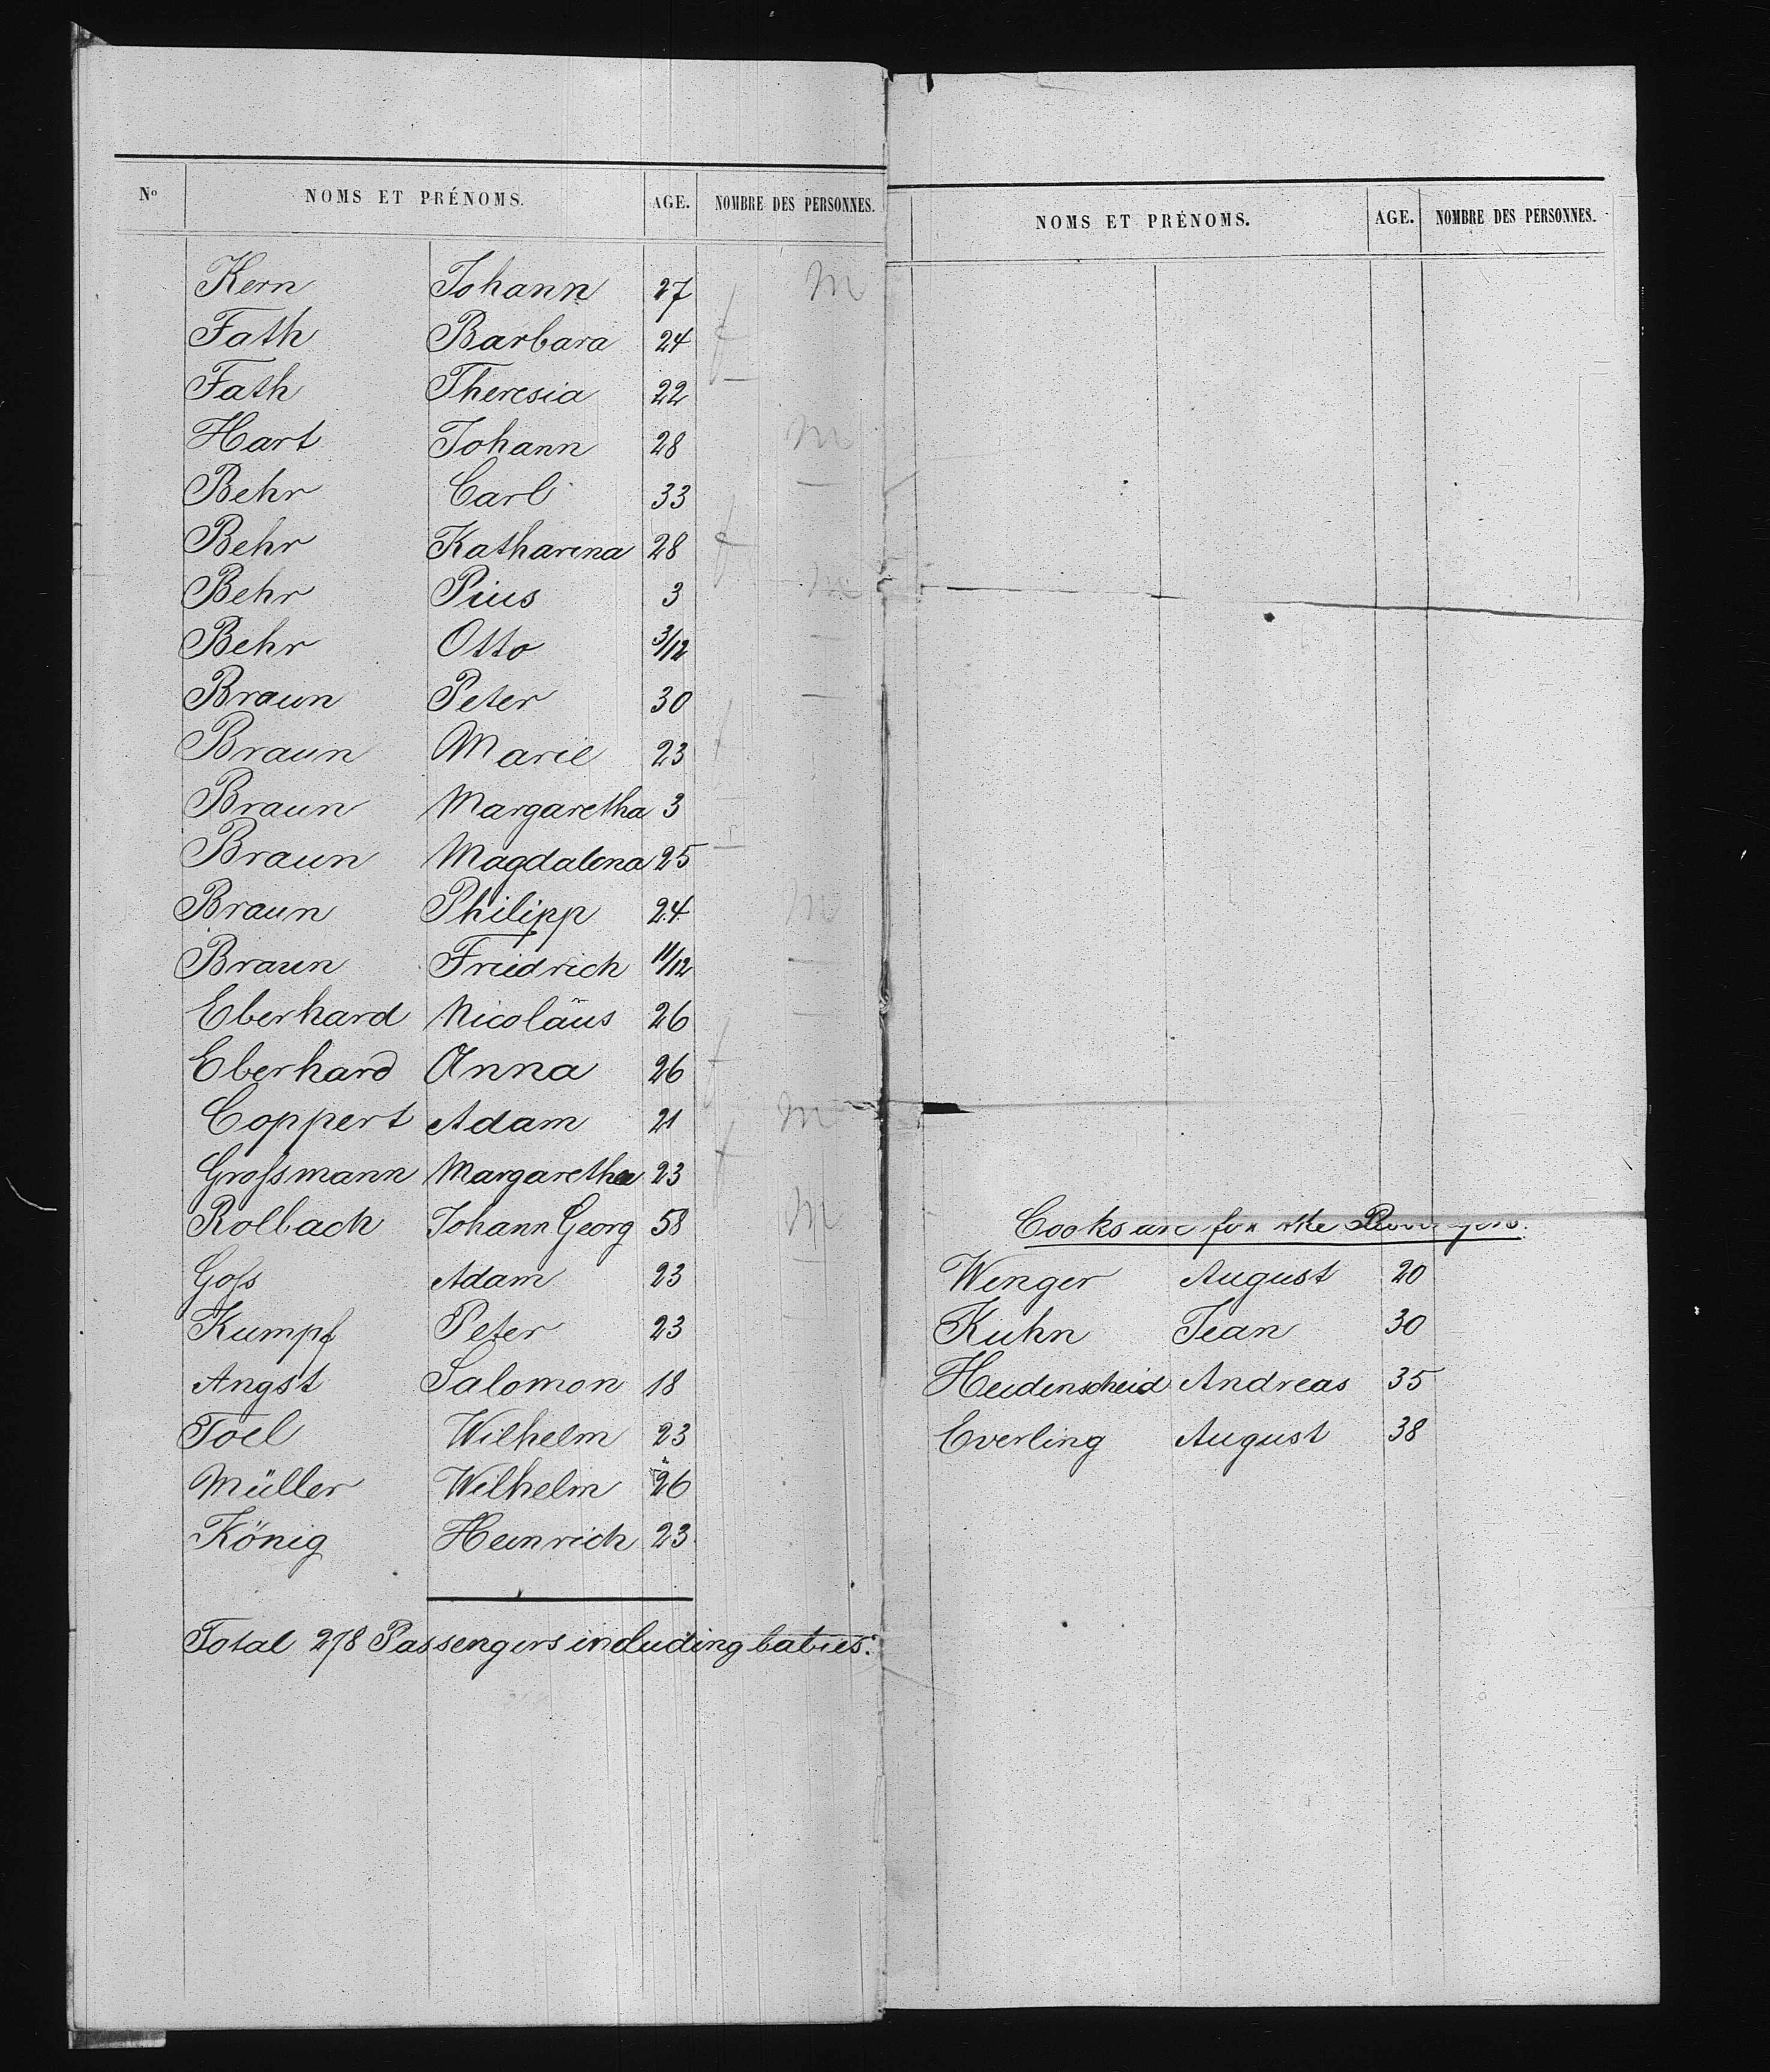 Nº NOMS ET PRÉNOMS. AGE. NOMBRE DES PERSONNES.
Kern Johann 27 m
Fath Barbara 24 f
Fath Theresia 22 —
Hart Johann 28 m
Behr Carl 33 —
Behr Katharina 28 f
Behr Pius 3 m
Behr Otto 3/12 —
Braun Peter 30 —
Braun Marie 23 f
Braun Margaretha 3 —
Braun Magdalena 25 —
Braun Philipp 24 m
Braun Friedrich 11/12 —
Eberhard Nicoläus 26 —
Eberhard Anna 26 f
Coppert Adam 21 m
Groſsmann Margaretha 23 f
Rolbach Johann Georg 58 m
Goſs Adam 23 —
Kumpf Peter 23 —
Angst Salomon 18
Joel Wilhelm 23
Müller Wilhelm 26
König Heinrich 23
Total 278 Passengers including babies.
NOMS ET PRÉNOMS. AGE. NOMBRE DES PERSONNES.
Cooks are for the
Wenger August 20
Kuhn Jean 30
Heidenscheid Andreas 35
Everling August 38